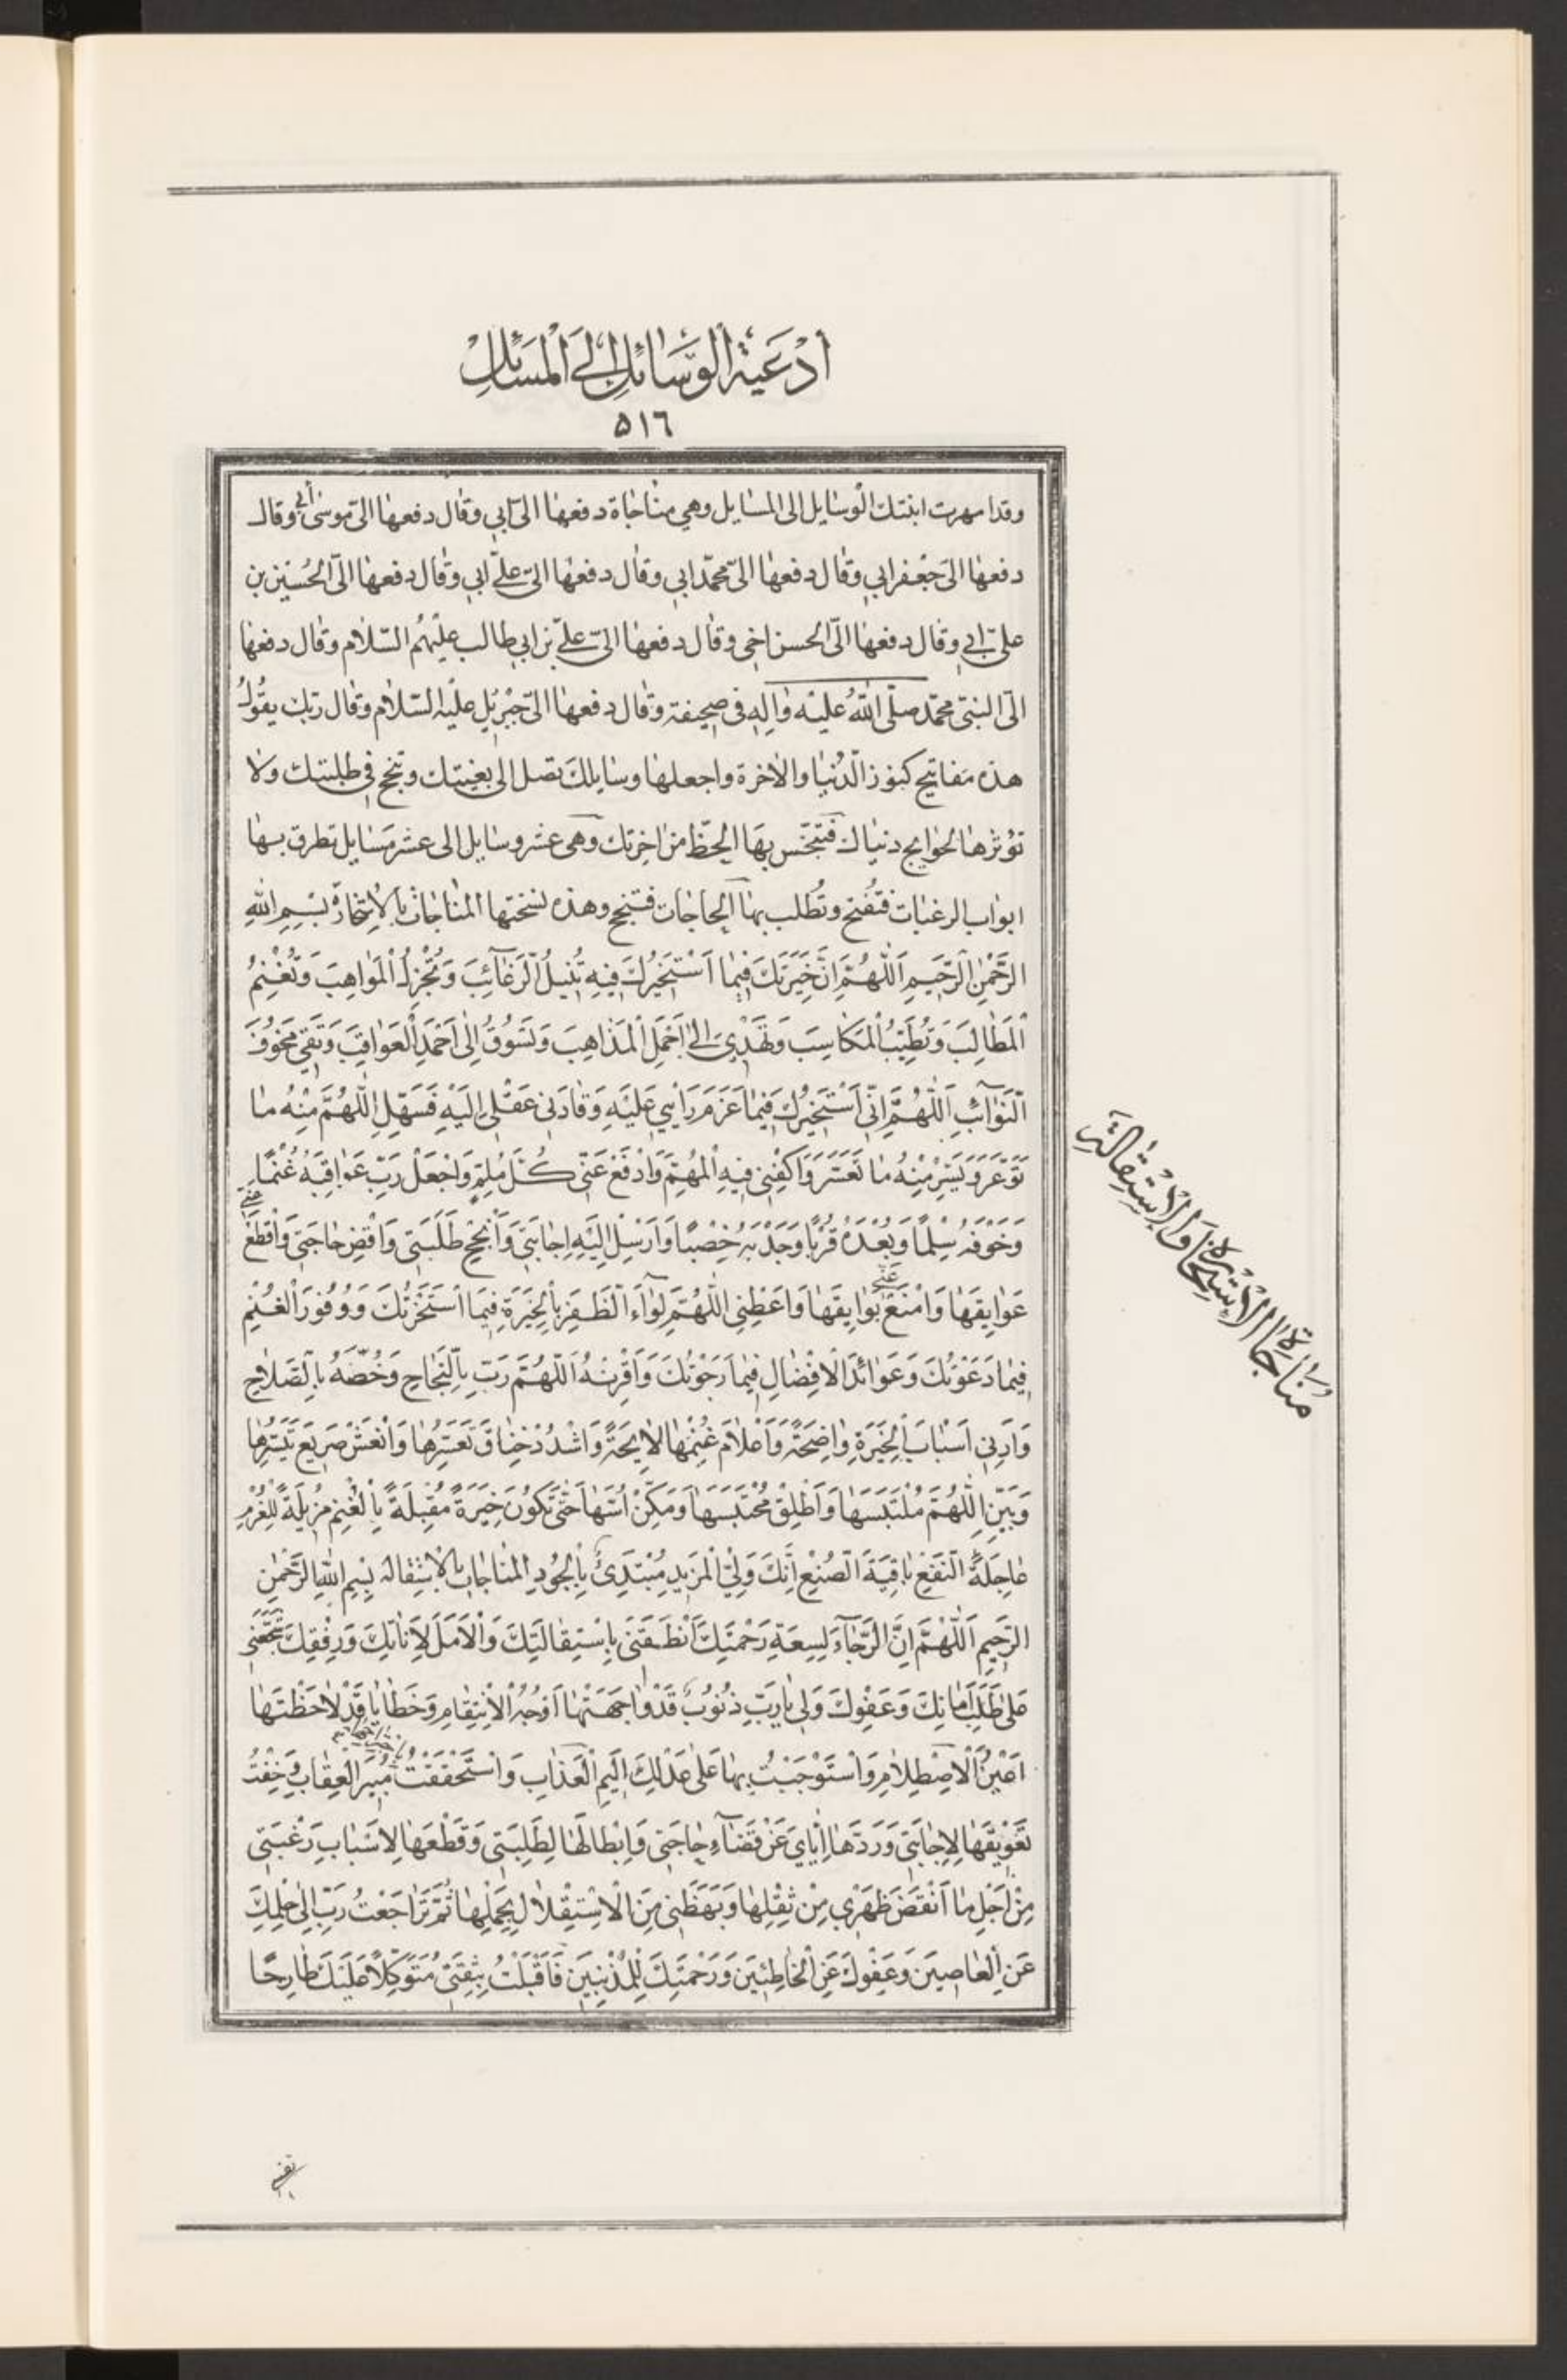 أَدْعِيَةُ الْوَسَائِلِ إِلَى الْمَسَائِلِ
٥١٦
وقد امهرت ابنتك الوسايل الى المسايل وهي مناجاة دفعها الىّ ابي وقال دفعها الىّ موسى أبي وقال
دفعها الىّ جعفر ابي وقال دفعها الىّ محمّد ابي وقال دفعها الىّ علىّ ابي وقال دفعها الىّ الحُسَيْن بن
علىّ ابي وقال دفعها الىّ الحسن اخى وقال دفعها الىّ علىّ بن ابى طالب عليهمُ السّلام وقال دفعها
الىّ النبىّ محمّد صلّى اللهُ عليه واله فى صحيفة وقال دفعها الىّ جبرئيل عليه السّلام وقال ربّك يقُولُ
هذه مفاتيح كنوز الدُّنيا والاخرة واجعلها وسايلك تصل الى بغيتك وتنجح فى طلبتك ولا
تؤثرها لحوايج دنياك فتبخس بها الحظّ من اخرتك وهى عشر وسايل الى عشر مسايل تطرق بها
ابواب الرغبات فتُفتح وتُطلب بها الحاجات فتنجح وهذه نسختها المناجات بالاستخارة بِسْمِ اللهِ
الرَّحْمٰنِ الرَّحيمِ اَللّٰهُمَّ اِنَّ خِيَرَتَكَ فيمَا اَسْتَخيرُكَ فيهِ تُنيلُ الرَّغآئِبَ وَتُجْزِلُ الْمَواهِبَ وَتُغْنِمُ
الْمَطالِبَ وَتُطَيِّبُ الْمَكاسِبَ وَتَهْدي اِلىٰ اَجْمَلِ الْمَذاهِبَ وَتَسُوقُ اِلىٰ اَحْمَدِ الْعَواقِبَ وَتَقي مَخُوفَ
النَّوآئِبِ اَللّٰهُمَّ اِنّي اَسْتَخيرُكَ فيما عَزَمَ رَاْيي عَلَيْهِ وَقادَني عَقْلي اِلَيْهِ فَسَهِّلِ اللّٰهُمَّ مِنْهُ ما
تَوَعَّرَ وَيَسِّرْ مِنْهُ ما تَعَسَّرَ وَاكْفِنى فيهِ الْمُهِمَّ وَادْفَعْ عَنّى كُلَّ مُلِمٍّ وَاجْعَلْ رَبِّ عَواقِبَهُ غُنْمًا
وَخَوْفَهُ سِلْمًا وَبُعْدَهُ قُرْبًا وَجَدْبَهُ خِصْبًا وَاَرْسِلِ اِلَيْهِ اِجابَتي وَاَنْجِحْ طَلِبَتي وَاقْضِ حاجَتي وَاقْطَعْ عَنّي
عَوايِقَها وَامْنَعْ عَنّي بَوايِقَها وَاَعْطِنِى اللّٰهُمَّ لِوآءَ الظَّفَرِ بِالْخِيَرَةِ فيمَا اسْتَخَرْتُكَ وَوُفُورَ الْغُنْمِ
فيما دَعَوْتُكَ وَعَوائِدَ الْاِفْضالِ فيما رَجَوْتُكَ وَاَقْرِنْهُ اَللّٰهُمَّ رَبِّ بِالنَّجاحِ وَخُصَّهُ بِالصَّلاحِ
وَاَرِني اَسْبابَ الْخِيَرَةِ واضِحَةً وَاَعْلامَ غُنْمِها لايِحَةً وَاشْدُدْ خِناقَ تَعَسُّرِها وَانْعَشْ صَريعَ تَيَسُّرِها
وَبَيِّنِ اللّٰهُمَّ مُلْتَبَسَها وَاَطْلِقْ مُحْتَبَسَها وَمَكِّنْ اُسَّها حَتّىٰ تَكُونَ خِيَرَةً مُقْبِلَةً بِالْغُنْمِ مُزيلَةً لِلْغُرْمِ
عاجِلَةً النَّفْعِ باقِيَةَ الصُّنْعِ اِنَّكَ وَلِيُّ الْمَزيدِ مُبْتَدِئٌ بِالْجُودِ المناجات بالاستقالة بِسْمِ اللهِ الرَّحْمٰنِ
الرَّحيمِ اَللّٰهُمَّ اِنَّ الرَّجآءَ لِسِعَةِ رَحْمَتِكَ اَنْطَقَنى بِاسْتِقالَتِكَ وَالْاَمَلَ لِاَناتِكَ وَرِفْقِكَ شَجَّعَنى
عَلىٰ طَلَبِ اَمانِكَ وَعَفْوِكَ وَلى يا رَبِّ ذُنُوبٌ قَدْ واجَهَتْها اَوْجُهُ الْاِنْتِقامِ وَخَطايا قَدْ لاحَظَتْها
اَعْيُنُ الْاِصْطِلامِ وَاسْتَوْجَبْتُ بِها عَلىٰ عَدْلِكَ اَليمَ الْعَذابِ وَاسْتَحْقَقْتُ مُبيرَ الْعِقابِ وَخِفْتُ
تَعْويقَها لِاِجابَتي وَرَدَّها اِيّايَ عَنْ قَضآءِ حاجَتي وَاِبْطالَها لِطَلِبَتي وَقَطْعَها لِاَسْبابِ رَغْبَتي
مِنْ اَجْلِ ما اَنْقَضَ ظَهْري مِنْ ثِقْلِها وَبَهَظَني مِنَ الْاِسْتِقْلالِ بِحَمْلِها ثُمَّ تَراجَعْتُ رَبِّ اِلىٰ حِلْمِكَ
عَنِ الْعاصينَ وَعَفْوِكَ عَنِ الْخاطِئينَ وَرَحْمَتِكَ لِلْمُذْنِبينَ فَاَقْبَلْتُ بِثِقَتي مُتَوَكِّلًا عَلَيْكَ طارِحًا
مُناجاةُ الْاِسْتِخارَةِ وَالْاِسْتِقالَةِ
نفسى